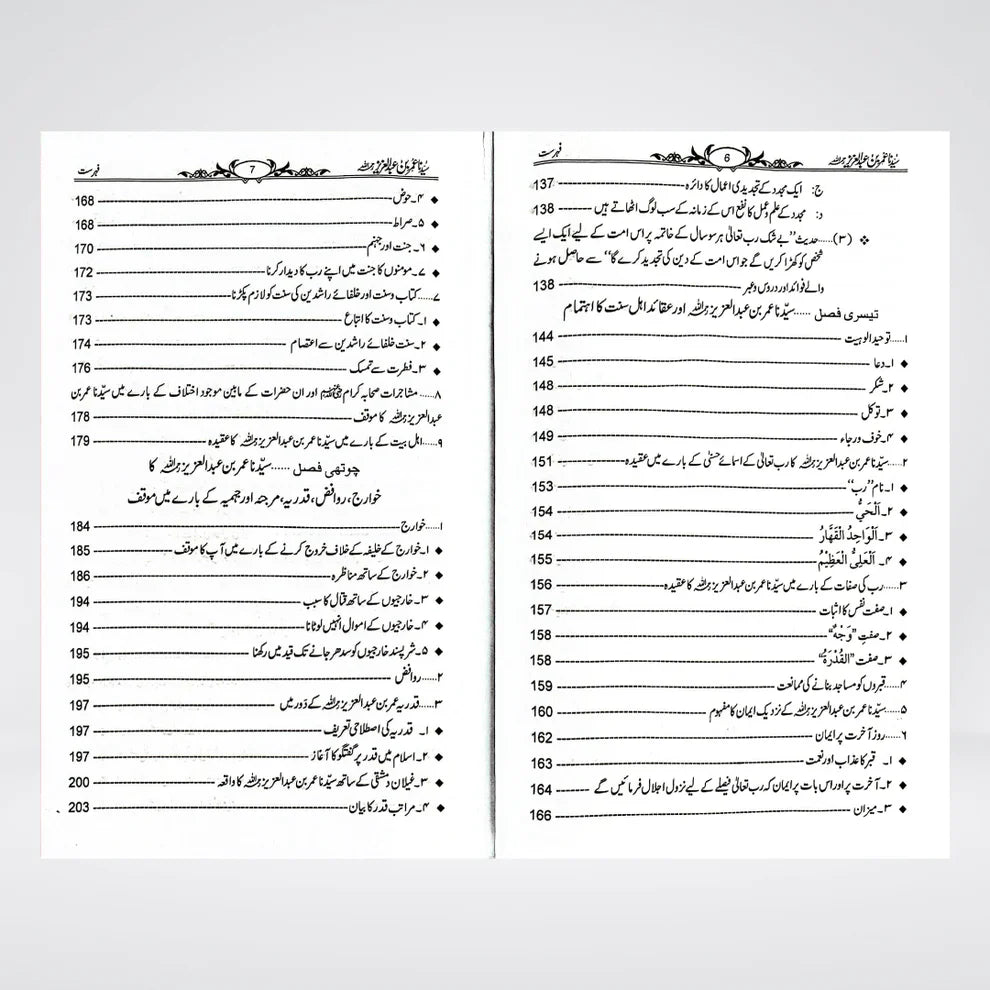 سیّدنا عمر بن عبدالعزیز رحمہ اللہ 6 فہرست
ج: ایک مجدد کے تجدیدی اعمال کا دائرہ 137
د: مجدد کے علم وعمل کا نفع اس کے زمانہ کے سب لوگ اٹھاتے ہیں 138
❖ (۳)......حدیث ’’بے شک رب تعالیٰ ہر سو سال کے خاتمہ پر اس امت کے لیے ایک ایسے
شخص کو کھڑا کریں گے جو اس امت کے دین کی تجدید کرے گا‘‘ سے حاصل ہونے
والے فوائد اور دروس وعبر 138
تیسری فصل ......سیّدنا عمر بن عبدالعزیز رحمہ اللہ اور عقائد اہل سنت کا اہتمام
۱.....توحید الوہیت 144
◆ ۱۔دعا 145
◆ ۲۔شکر 148
◆ ۳۔توکل 148
◆ ۴۔خوف ورجاء 149
۲......سیّدنا عمر بن عبدالعزیز رحمہ اللہ کا رب تعالیٰ کے اسمائے حسنٰی کے بارے میں عقیدہ 151
◆ ۱۔نام ’’رب‘‘ 153
◆ ۲۔اَلْحَيُّ 154
◆ ۳۔اَلْوَاحِدُ الْقَهَّارُ 154
◆ ۴۔ اَلْعَلِیُّ الْعَظِیْمُ 155
۳......رب کی صفات کے بارے میں سیّدنا عمر بن عبدالعزیز رحمہ اللہ کا عقیدہ 156
◆ ۱۔صفت نفس کا اثبات 157
◆ ۲۔صفتِ ’’وَجْهٌ‘‘ 158
◆ ۳۔صفت ’’اَلْقُدْرَةُ‘‘ 158
۴.....قبروں کو مساجد بنانے کی ممانعت 159
۵......سیّدنا عمر بن عبدالعزیز رحمہ اللہ کے نزدیک ایمان کا مفہوم 160
۶......روزِ آخرت پر ایمان 162
◆ ۱۔ قبر کا عذاب اور نعمت 163
◆ ۲۔آخرت پر اور اس بات پر ایمان کہ رب تعالیٰ فیصلے کے لیے نزول اجلال فرمائیں گے 164
◆ ۳۔میزان 166
سیّدنا عمر بن عبدالعزیز رحمہ اللہ 7 فہرست
◆ ۴۔حوض 168
◆ ۵۔صراط 168
◆ ۶۔جنت اور جہنم 170
◆ ۷۔مومنوں کا جنت میں اپنے رب کا دیدار کرنا 172
۷.....کتاب وسنت اور خلفائے راشدین کی سنت کو لازم پکڑنا 173
◆ ۱۔کتاب وسنت کا اتباع 173
◆ ۲۔سنت خلفائے راشدین سے اعتصام 174
◆ ۳۔فطرت سے تمسک 176
۸...... مشاجرات صحابہ کرام رضی اللہ عنہم اور ان حضرات کے مابین موجود اختلاف کے بارے میں سیّدنا عمر بن
عبدالعزیز رحمہ اللہ کا موقف 178
۹......اہل بیت کے بارے میں سیّدنا عمر بن عبدالعزیز رحمہ اللہ کا عقیدہ 179
چوتھی فصل ......سیّدنا عمر بن عبدالعزیز رحمہ اللہ کا
خوارج، روافض، قدریہ، مرجئہ اور جہمیہ کے بارے میں موقف
۱.....خوارج 184
◆ ۱۔خوارج کے خلیفہ کے خلاف خروج کرنے کے بارے میں آپ کا موقف 185
◆ ۲۔خوارج کے ساتھ مناظرہ 186
◆ ۳۔خارجیوں کے ساتھ قتال کا سبب 194
◆ ۴۔خارجیوں کے اموال انہیں لوٹانا 194
◆ ۵۔شر پسند خارجیوں کو سدھر جانے تک قید میں رکھنا 195
۲......روافض 195
۳.....قدریہ عمر بن عبدالعزیز رحمہ اللہ کے دَور میں 197
◆ ۱۔ قدریہ کی اصطلاحی تعریف 197
◆ ۲۔اسلام میں قدر پر گفتگو کا آغاز 197
◆ ۳۔غیلان دمشقی کے ساتھ سیّدنا عمر بن عبدالعزیز رحمہ اللہ کا واقعہ 200
◆ ۴۔مراتب قدر کا بیان 203